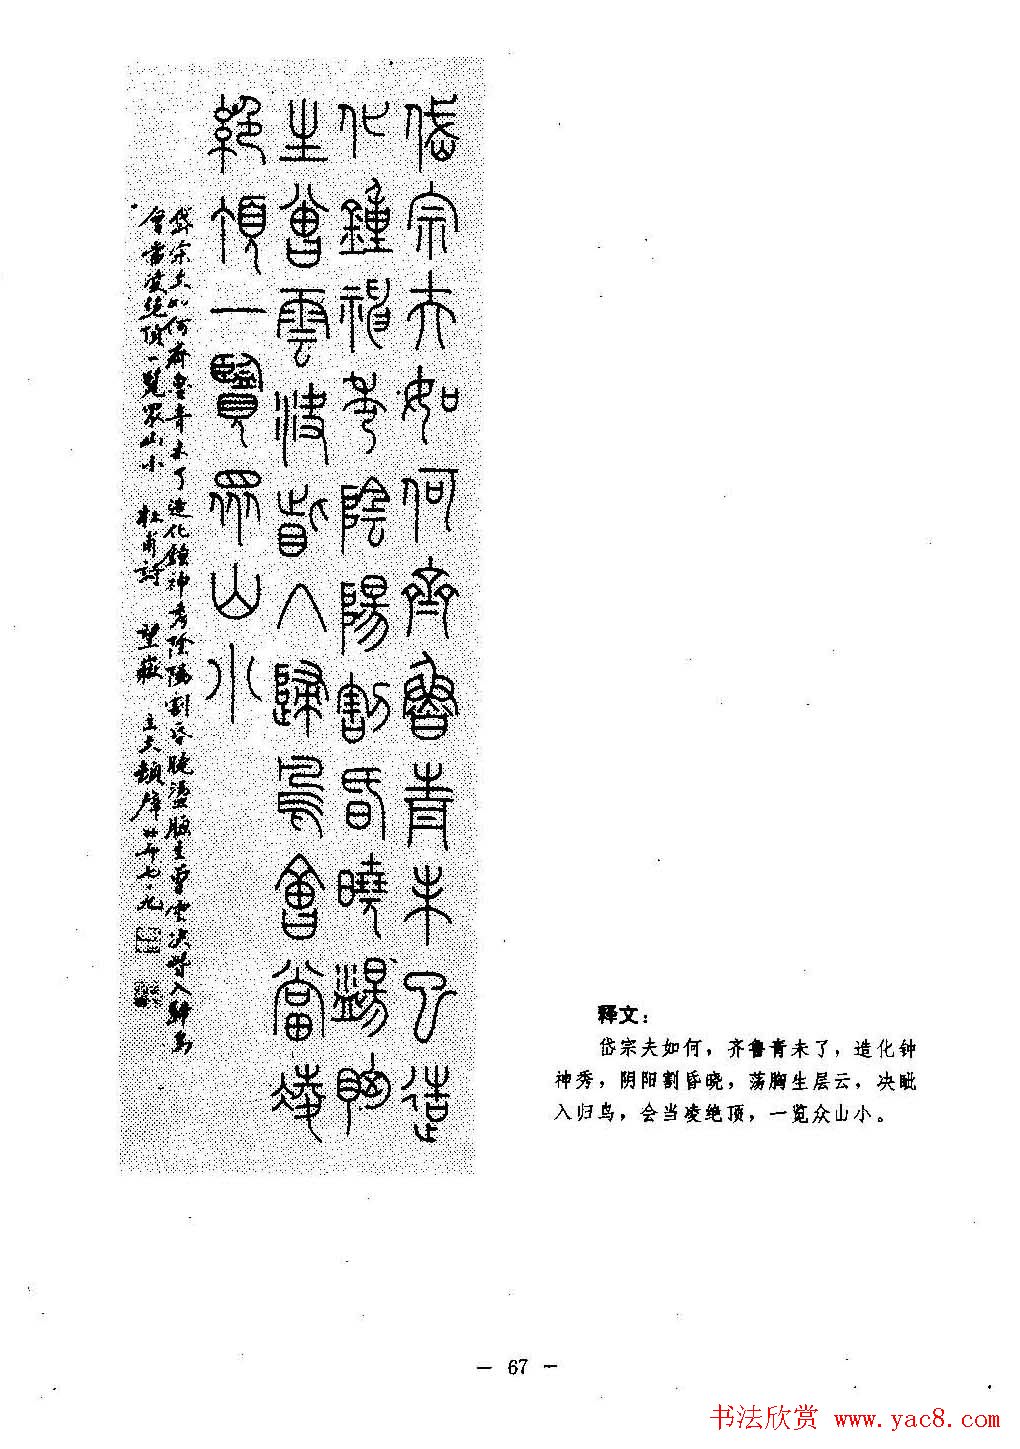 岱宗夫如何齊魯青未了造
化鐘神秀陰陽割昏曉盪胸
生曾雲決眥入歸鳥會當凌
絕頂一覽眾山小
岱宗夫如何齊魯青未了造化鐘神秀陰陽割昏曉盪胸生曾雲決眥入歸鳥
會當凌絕頂一覽眾山小 杜甫詩 望嶽
释文：
岱宗夫如何，齐鲁青未了，造化钟
神秀，阴阳割昏晓，荡胸生层云，决眦
入归鸟，会当凌绝顶，一览众山小。
— 67 —
书法欣赏 www.yac8.com